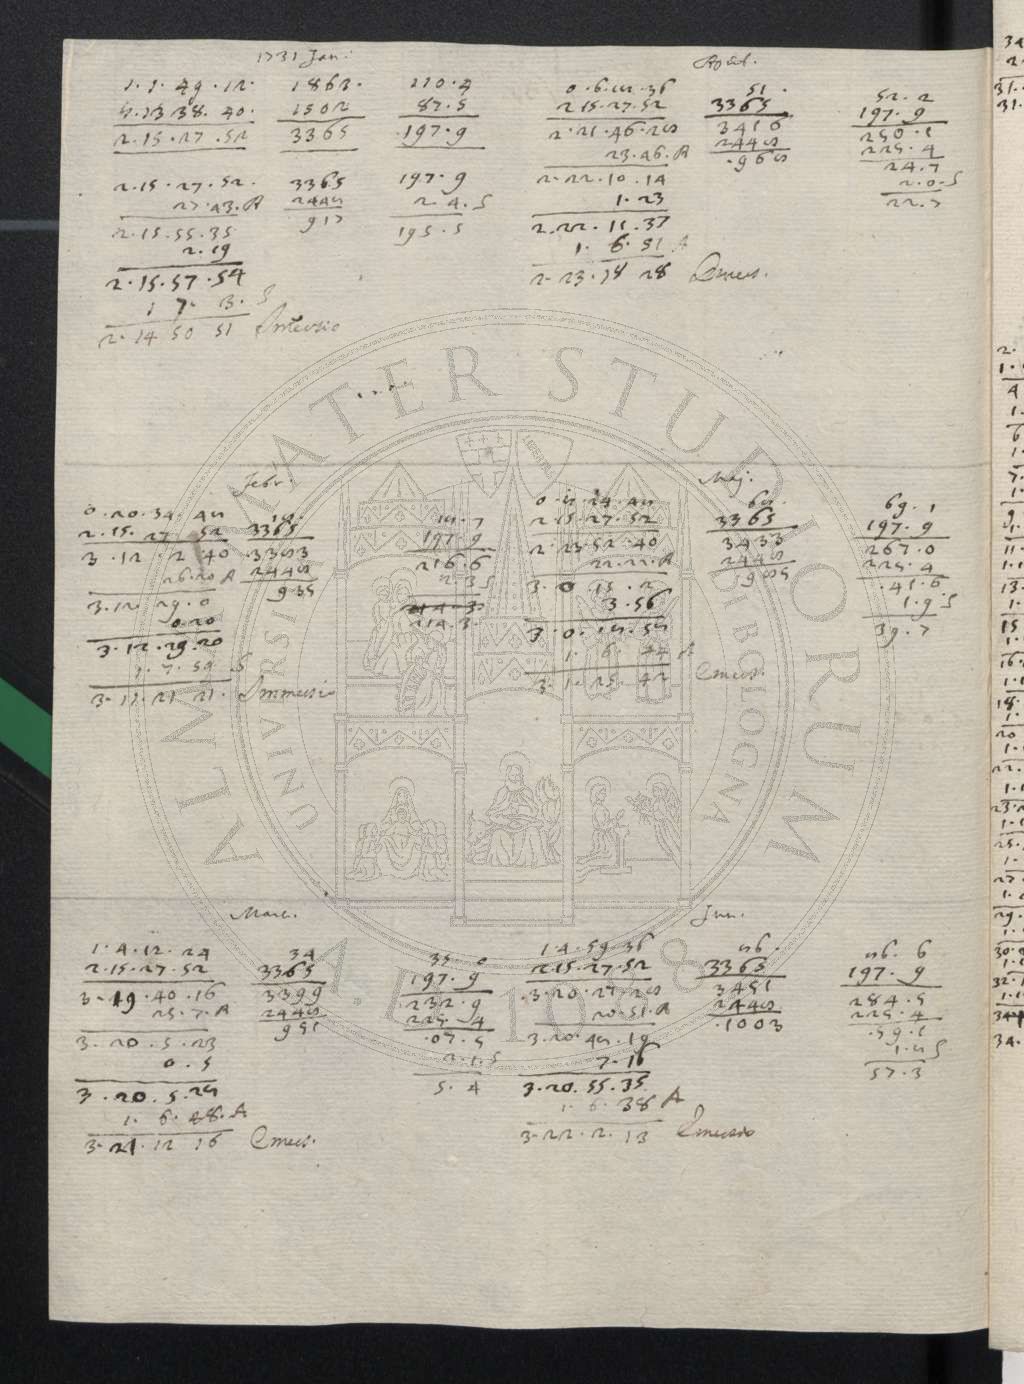 1731 Jan:
1. 1. 49. 12. 1863. 110. 4
1. 13 38. 40. 1502 87. 5
2. 15. 27. 52 3365 197. 9
2. 15. 27. 52. 3365 197. 9
27. 43. A 2448 2. 4. S
2. 15. 55. 35 917 195. 5
2. 19
2. 15. 57. 54
1 7. 3. S
2. 14 50 51 Immersio
April.
51.
3365 52. 2
2. 15. 27. 52 3416 197. 9
2448 250. 1
23. 46. A 968 225. 4
2. 22. 10. 14 24. 7
1. 23 2. 0. S
2. 22. 11. 37 22. 7
1. 6. 51 A
2. 23. 18 28 Emers.
Febr.
0. 20. 34. 48
2. 15. 27. 52 3365 197. 9
3. 12. 2. 40 3383 216. 6
26. 20 A 2448 2. 3 S
3. 12. 29. 0 935 214. 3.
0. 20
3. 12. 29. 20
1. 7. 59 S
3. 11. 21 21. Immersio
Maj.
68. 69. 1
2. 15. 27. 52 3365 197. 9
2. 23. 52. 40 3433 267. 0
22. 22. A 2448 225. 4
985 41. 6
3. 56 1. 9. S
39. 7
1. 6. 44 A
3. 1. 25. 42 Emers.
Mart.
1. 4. 12. 24 34 35. 0
2. 15. 27. 52 3365 197. 9
3. 19. 40. 16 3399 232. 9
25. 7. A 2448 225. 4
3. 20. 5. 23 951 07. 5
0. 5 2. 1. S
3. 20. 5. 28 5. 4
1. 6. 48. A
3. 21. 12 16 Emers.
Jun.
1. 4. 59. 36 86. 86. 6
2. 15. 27. 52 3365 197. 9
3. 20. 27. 28 3451 284. 5
20. 51. A 2448 225. 4
3. 20. 48. 19 1003 59. 1
7. 16 1. 8 S
3. 20. 55. 35 57. 3
1. 6. 38 A
3. 22. 2. 13 Emersio
ALMA MATER STUDIORUM
A.D. 1088
UNIVERSITÀ DI BOLOGNA